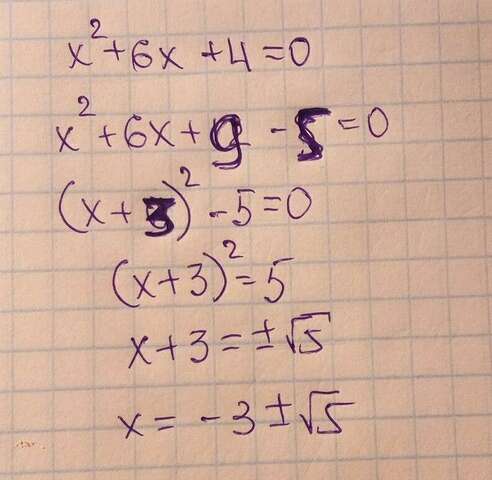 x² + 6x + 4 = 0
x² + 6x + 9 - 5 = 0
(x + 3)² - 5 = 0
(x + 3)² = 5
x + 3 = ±√5
x = -3 ± √5